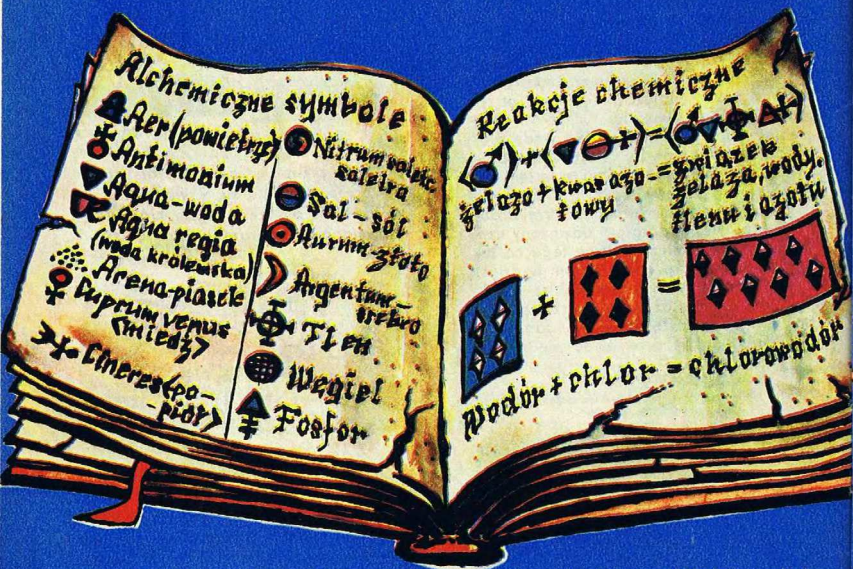 Alchemiczne symbole
Aer (powietrze)
Antimonium
Aqua-woda
Aqua regia
(woda królewska)
Arena-piasek
Cuprum venus
(miedź)
Cineres (po-
-piół)
Nitrum
saletra
Sal-sól
Aurum-złoto
Argentum-
srebro
Tlen
Węgiel
Fosfor
Reakcje chemiczne
( ) + ( + ) = ( )
żelazo + kwas azo- = związek
towy żelaza, wody,
tlenu i azotu
+ =
Wodór + chlor = chlorowodór